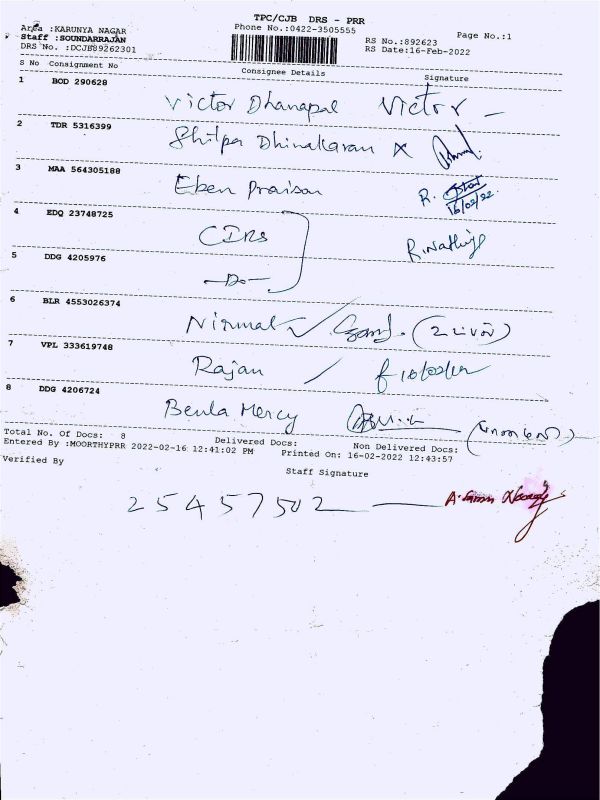 TPC/CJB DRS - PRR
Area :KARUNYA NAGAR Phone No.:0422-3505555 Page No.:1
Staff :SOUNDARRAJAN RS No.:892623
DRS No. :DCJB89262301 RS Date:16-Feb-2022
S No Consignment No Consignee Details Signature
1 BOD 290628
Victor Dhanapal Victor
2 TDR 5316399
Shilpa Dhinakaran
3 MAA 564305188
Eben Praison R.
16/02/22
4 EDQ 23748725
CIRS R.
5 DDG 4205976
-Do-
6 BLR 4553026374
Nirmal
7 VPL 333619748
Rajan 16/02/22
8 DDG 4206724
Beula Mercy
Total No. Of Docs: 8 Delivered Docs: Non Delivered Docs:
Entered By :MOORTHYPRR 2022-02-16 12:41:02 PM Printed On: 16-02-2022 12:43:57
Verified By
Staff Signature
25457502